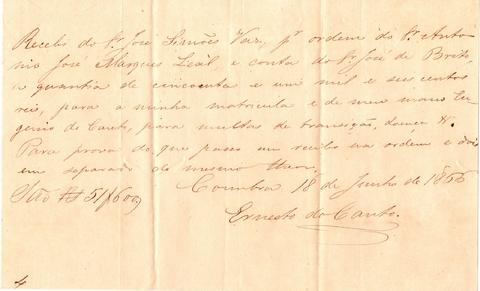 Recebi do Sr. José Simões Vaz, pr ordem do Sr. Anto-
nio José Marques Leal, e conta do Sr. José de Brito,
a quantia de cincoenta e um mil e seis centos
reis, para a minha matricula e de meu mano Eu-
genio do Canto, para multas de transição, doença &.
Para prova do que passo um recibo na ordem e dois
em separado do mesmo theor.
Coimbra 18 de Junho de 1856
São Rs 51$600
Ernesto do Canto.
4